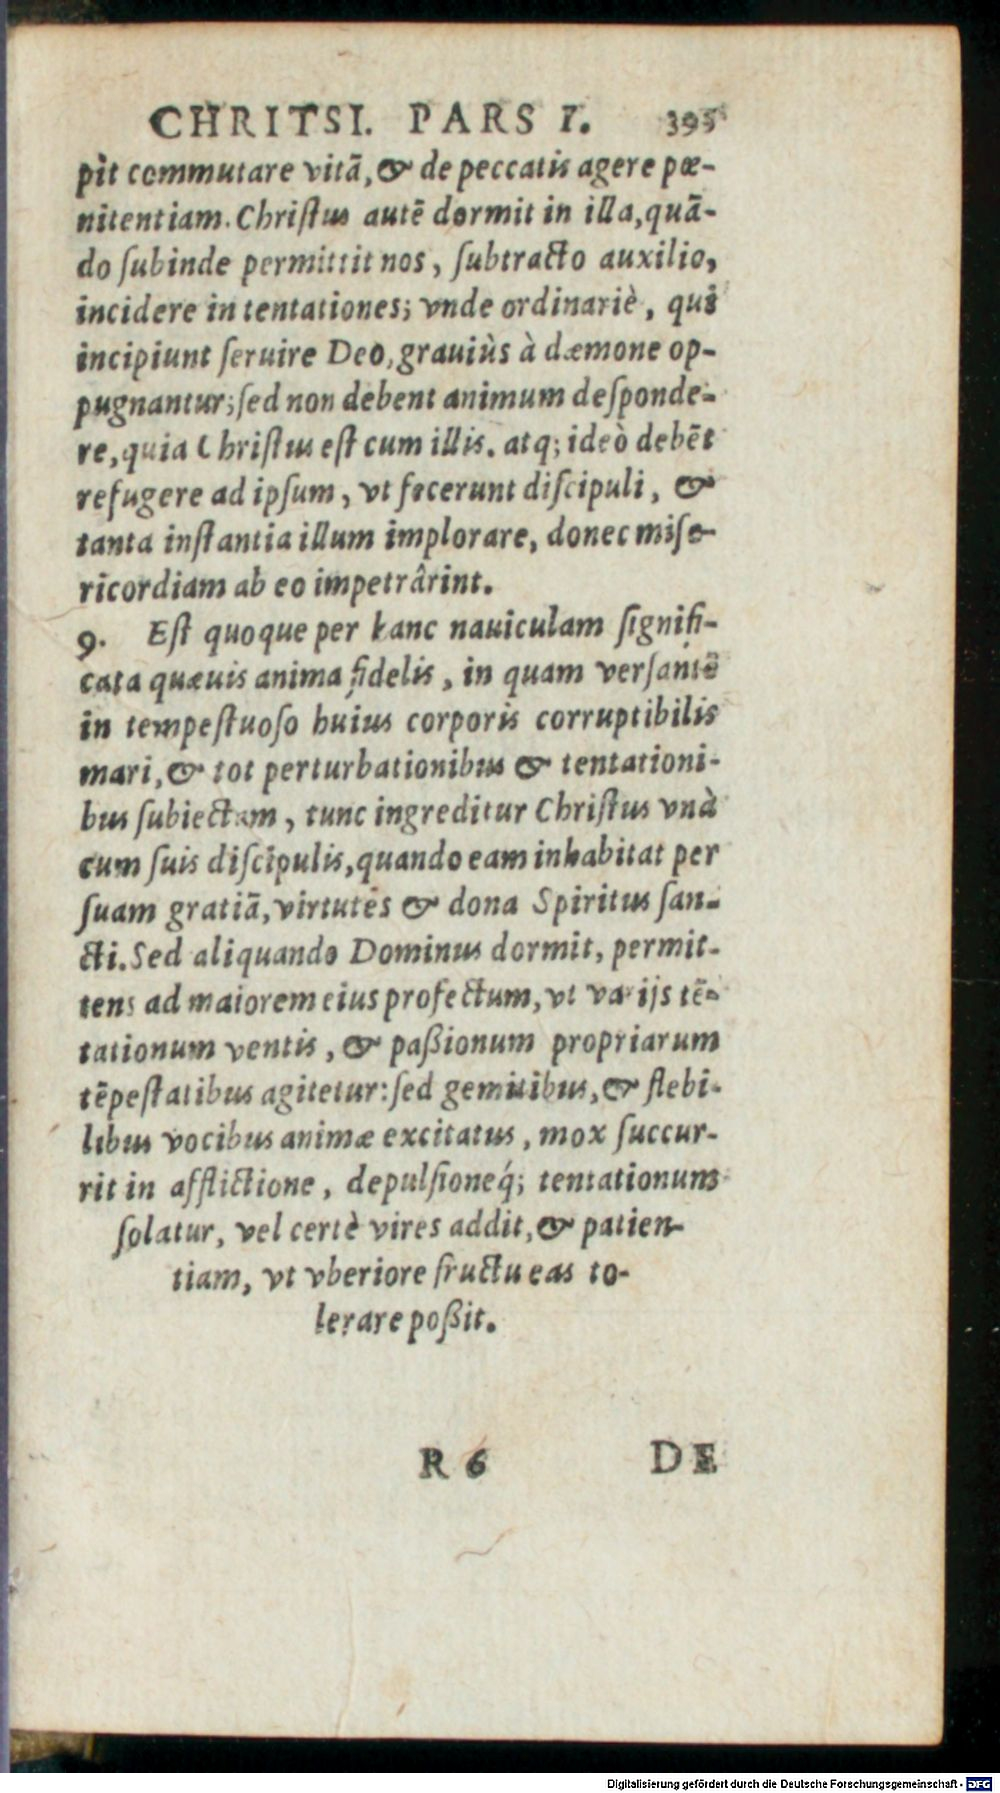 CHRITSI. PARS I. 395
pit commutare vitã, & de peccatis agere pœ-
nitentiam. Chriſtus autẽ dormit in illa, quã-
do ſubinde permittit nos, ſubtracto auxilio,
incidere in tentationes; vnde ordinariè, qui
incipiunt ſeruire Deo, grauiùs à dæmone op-
pugnantur; ſed non debent animum deſponde-
re, quia Chriſtus eſt cum illis. atq; ideò debẽt
refugere ad ipſum, vt fecerunt diſcipuli, &
tanta inſtantia illum implorare, donec miſe-
ricordiam ab eo impetrârint.
9. Eſt quoque per hanc nauiculam ſignifi-
cata quæuis anima fidelis, in quam verſantẽ
in tempeſtuoſo huius corporis corruptibilis
mari, & tot perturbationibus & tentationi-
bus ſubiectam, tunc ingreditur Chriſtus vnà
cum ſuis diſcipulis, quando eam inhabitat per
ſuam gratiã, virtutes & dona Spiritus ſan-
cti. Sed aliquando Dominus dormit, permit-
tens ad maiorem eius profectum, vt varijs tẽ-
tationum ventis, & paßionum propriarum
tẽpeſtatibus agitetur: ſed gemitibus, & flebi-
libus vocibus animæ excitatus, mox ſuccur-
rit in afflictione, depulſioneq́; tentationum
ſolatur, vel certè vires addit, & patien-
tiam, vt vberiore fructu eas to-
lerare poßit.
R 6 DE
Digitalisierung gefördert durch die Deutsche Forschungsgemeinschaft - DFG